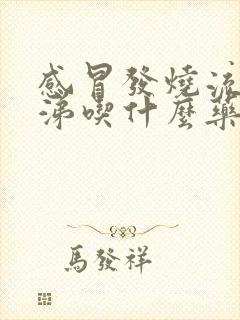 感冒發燒流
涕喫什麼藥
馬發祥